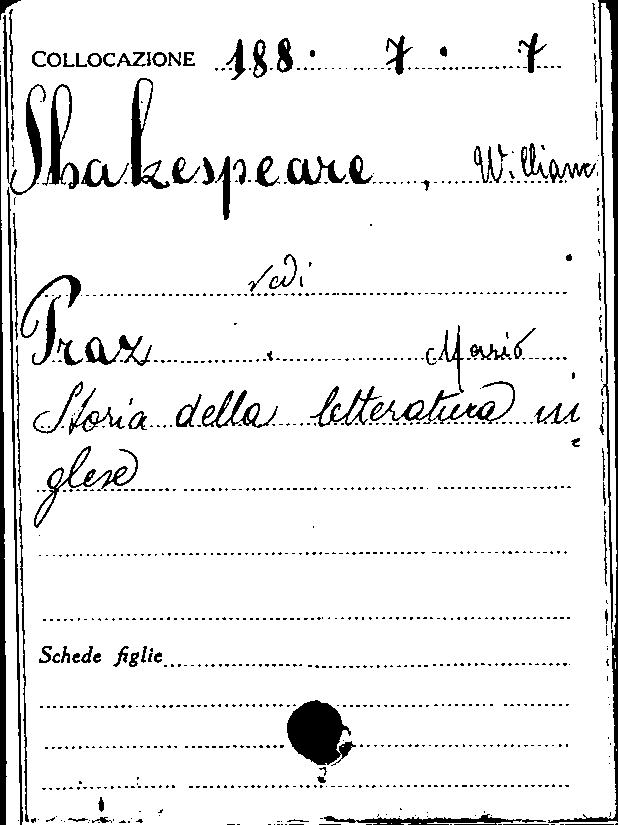 COLLOCAZIONE 188 · 7 · 7
Shakespeare, William
vedi
Praz Mario
Storia della letteratura in
glese
Schede figlie